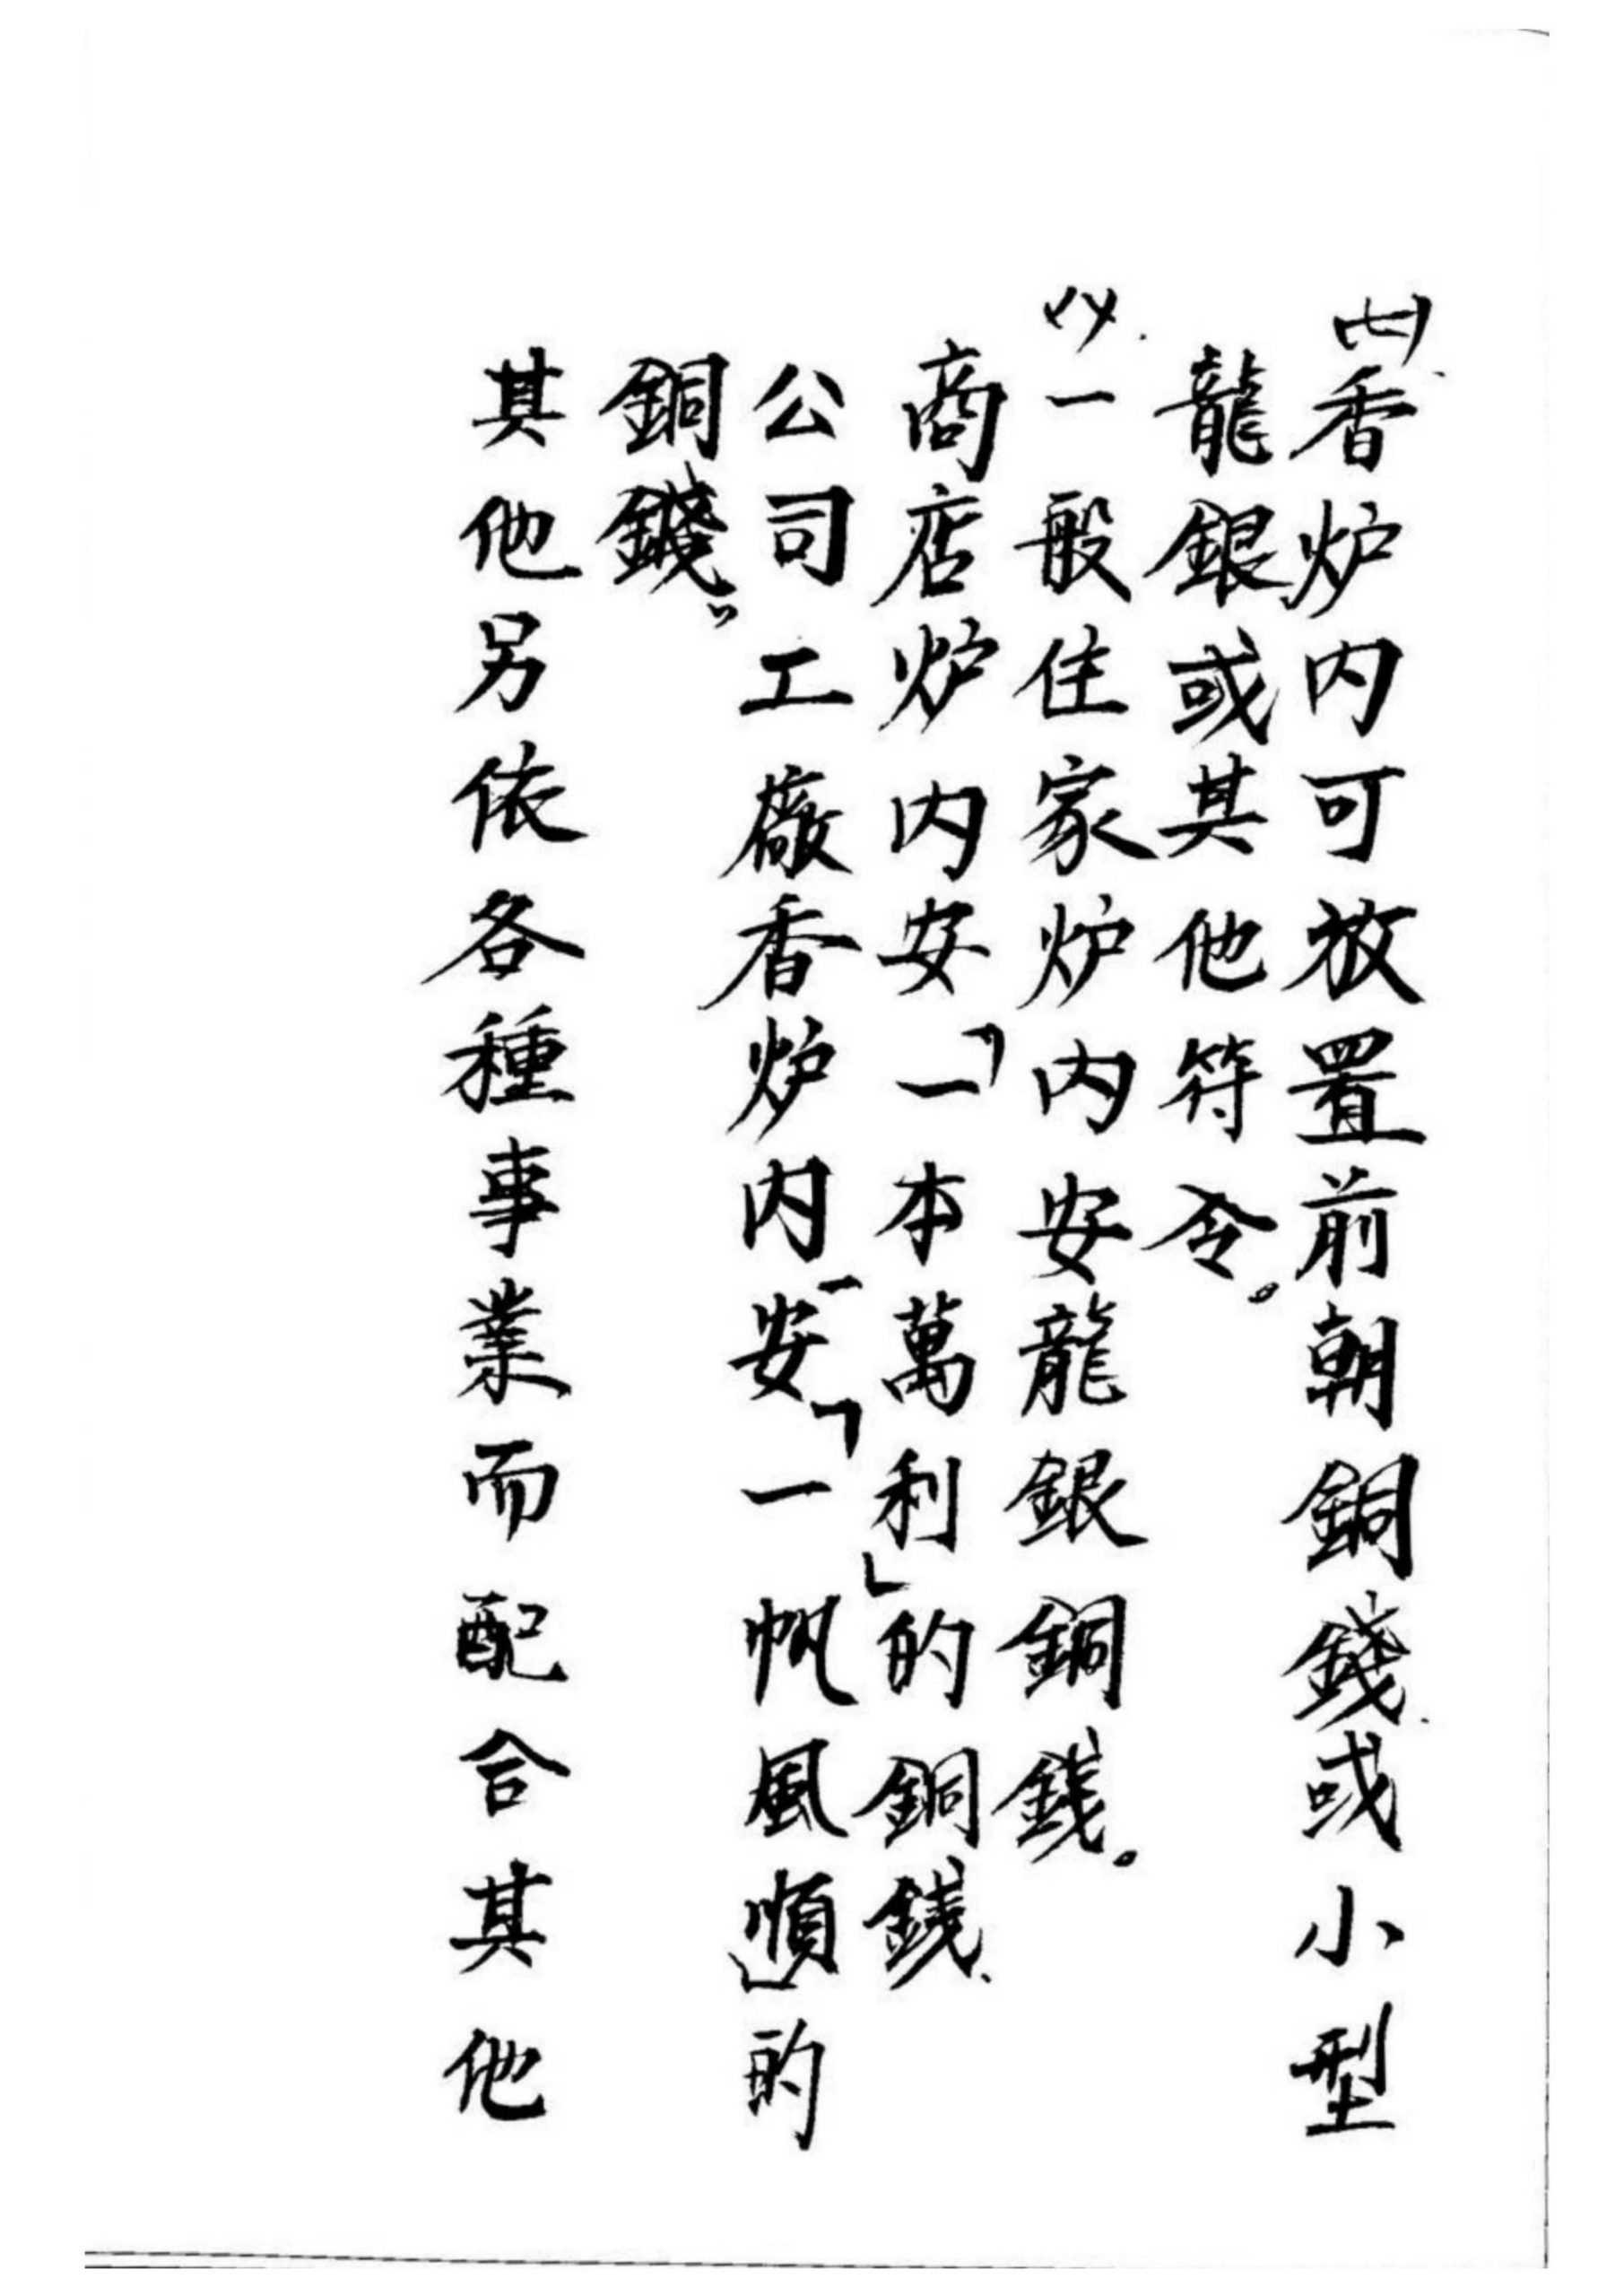 (七)香炉内可放置前朝銅錢或小型
龍銀或其他符令。
(八)一般住家炉内安龍銀銅錢。
商店炉内安「一本萬利」的銅錢、
公司工廠香炉内安「一帆風順」的
銅錢。
其他另依各種事業而配合其他